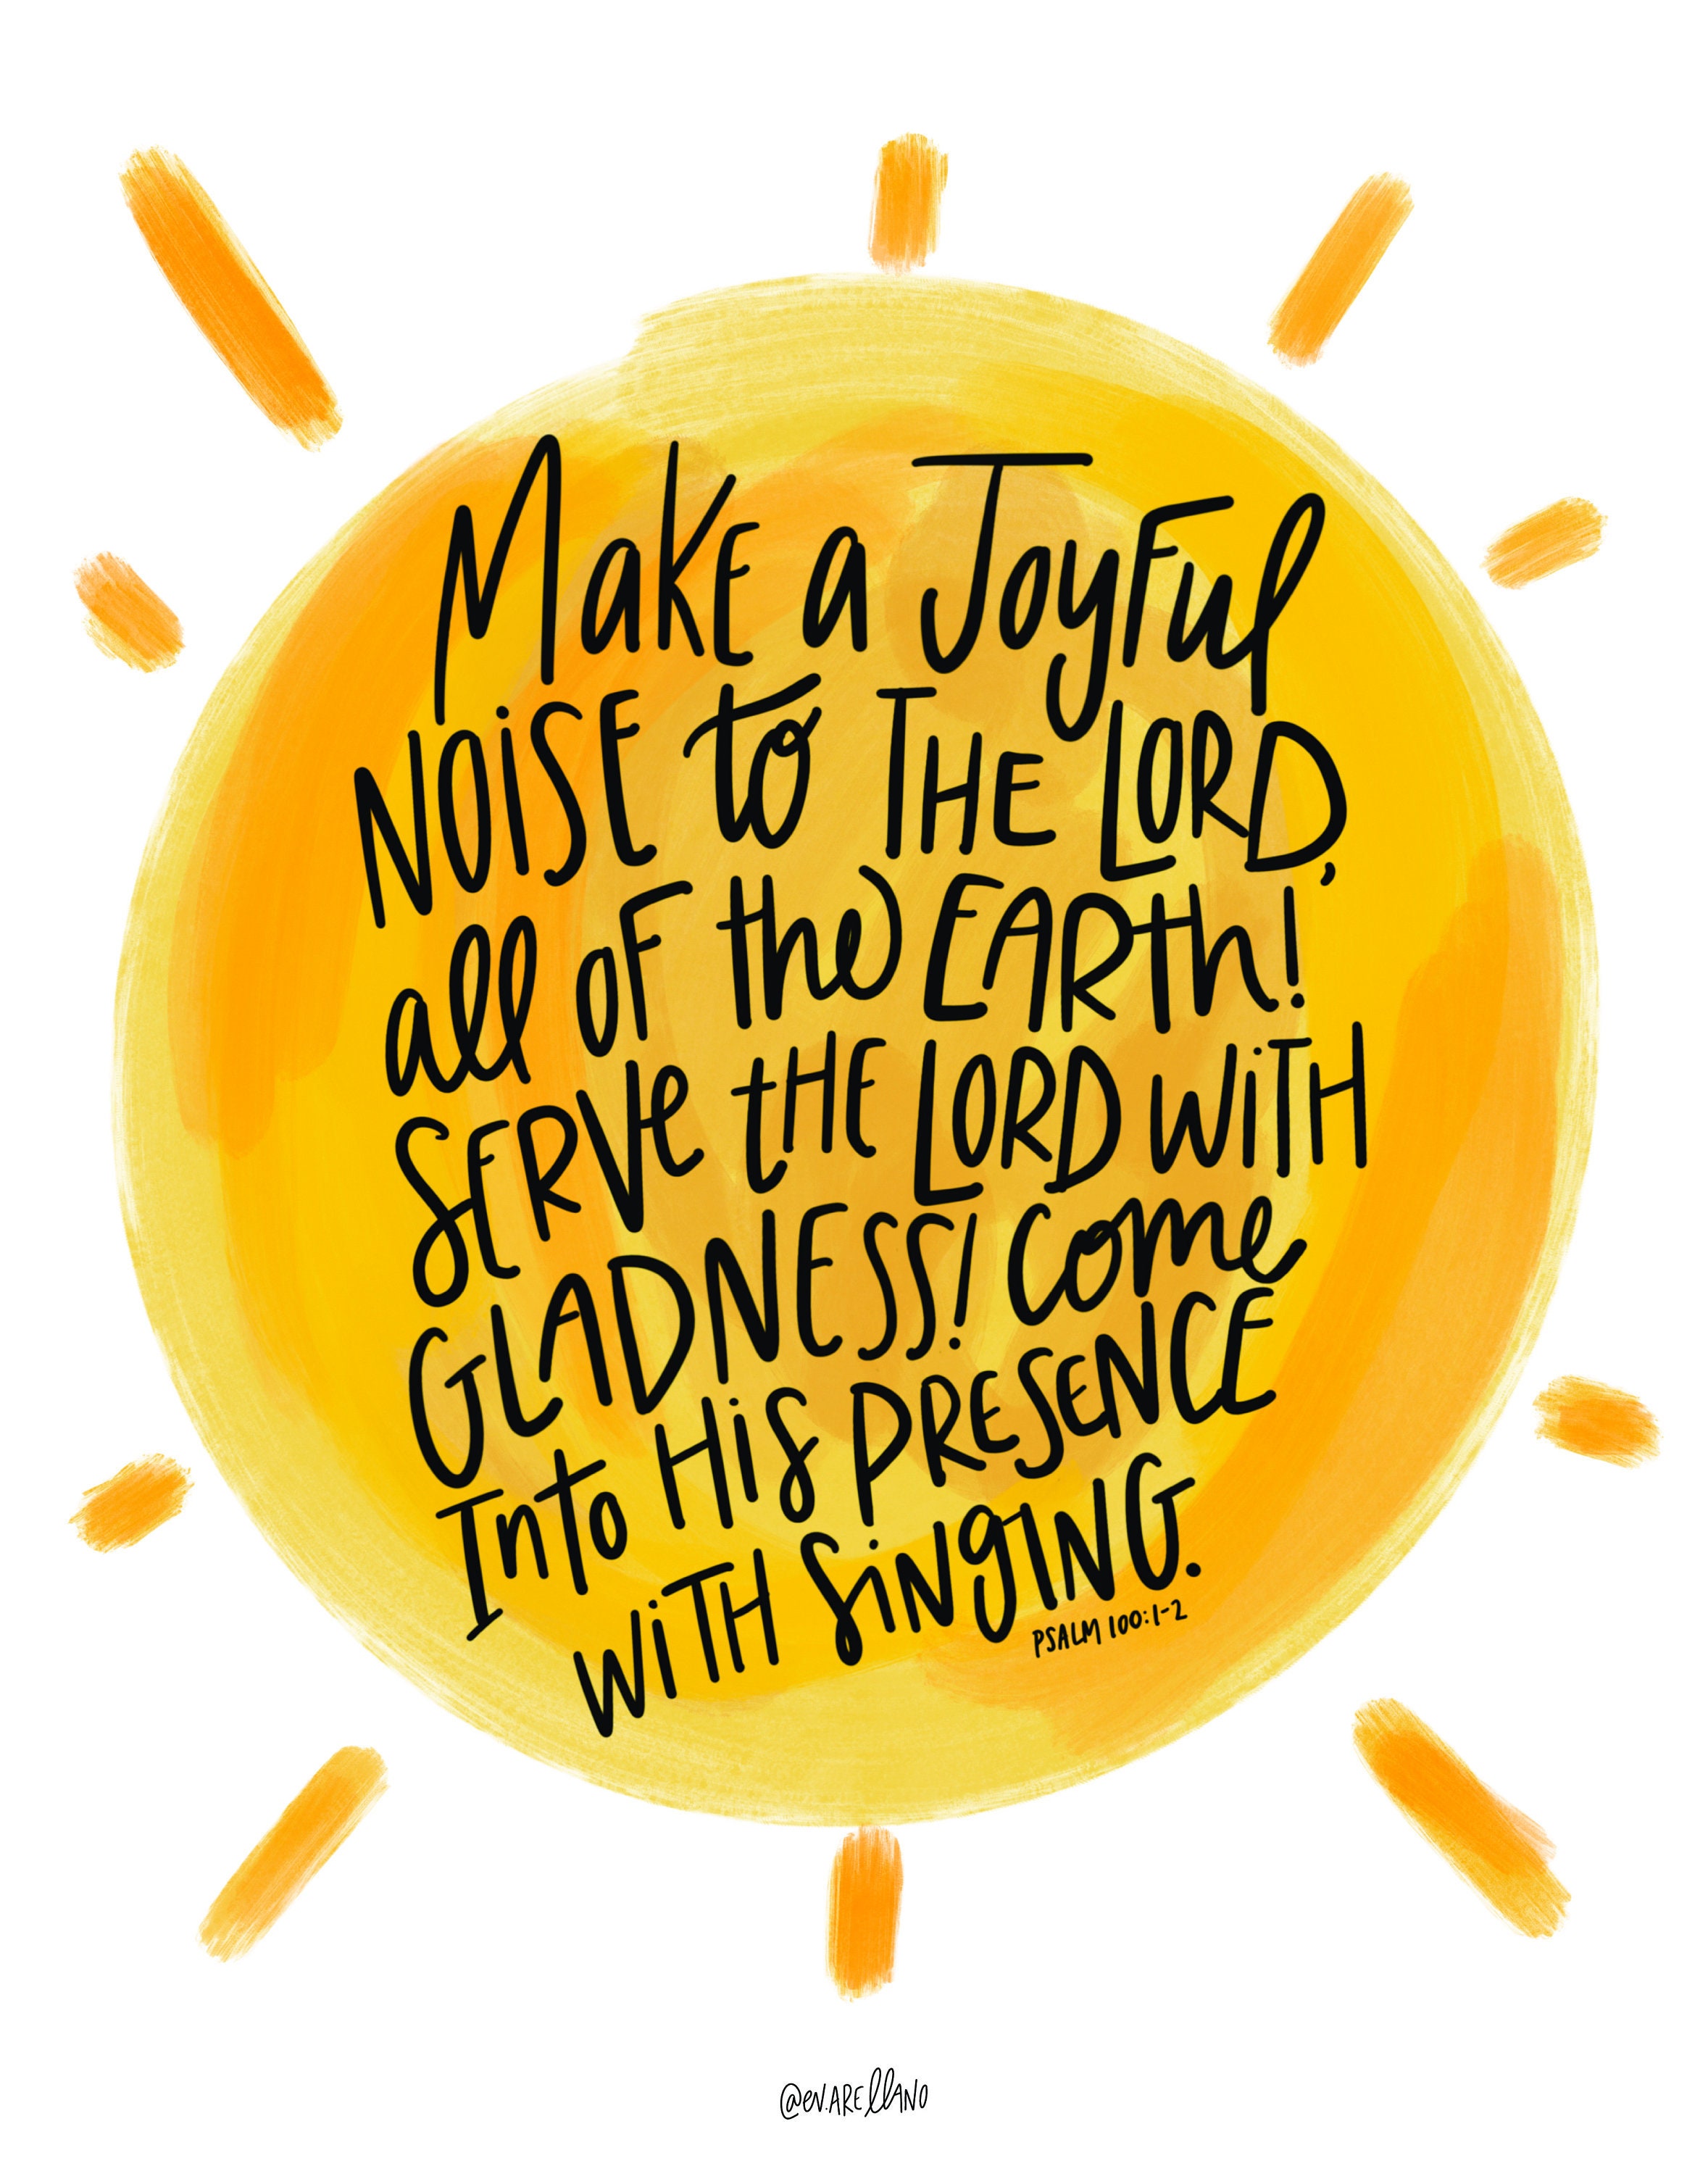 Make a Joyful
Noise to The Lord,
all of the Earth!
Serve the Lord with
Gladness! Come
Into His Presence
with singing.
PSALM 100:1-2
@ev.arellano